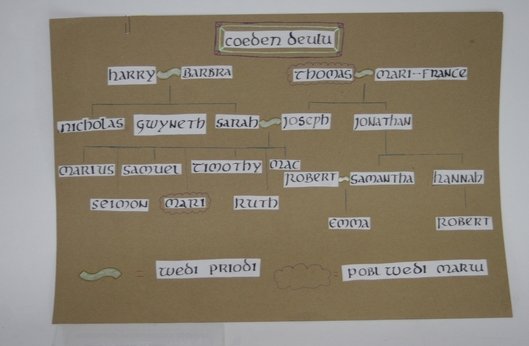 COEDEN DEULU
HARRY BARBRA THOMAS MARI-FRANCE
NICHOLAS GWYNETH SARAH JOSEPH JONATHAN
MARIUS SAMUEL TIMOTHY MAC ROBERT SAMANTHA HANNAH
SEIMON MARI RUTH EMMA ROBERT
= WEDI PRIODI = POBL WEDI MARW